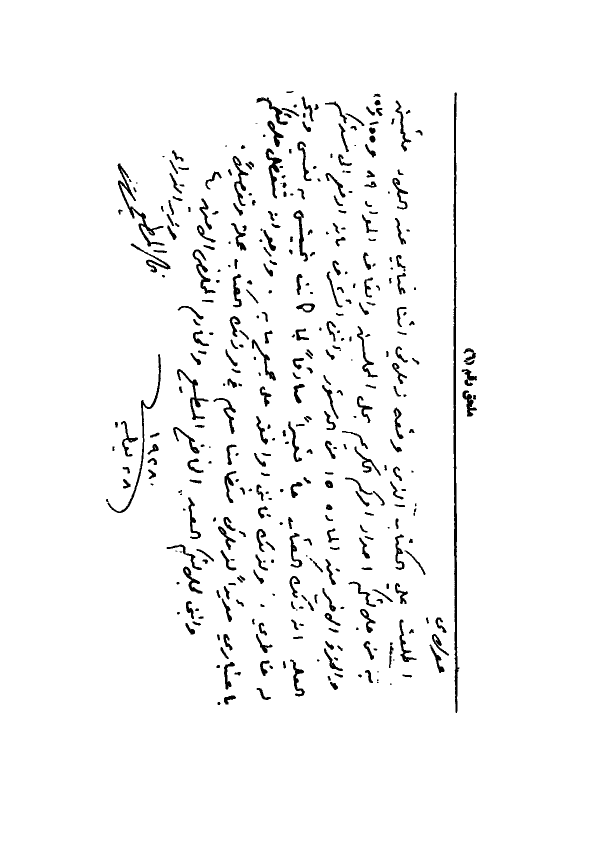 ملحق رقم (٦)
مولاي
اطلعت على الكتاب الذي رفعه زملائي أثناء غيابي عن البلاد ملتمسين
من جلالتكم اصدار أمركم الكريم بحل المجلسين وايقاف المواد ٨٩ و١٥٥ و١٥٧
والجزء الأخير من المادة ١٥ من الدستور واني أتشرف بأن أرفع الى سدتكم
العلية ان ذلك الكتاب جاء معبراً صادقاً لما كانت تجيش به نفسي ويتجه
له خاطري، ولذلك فاني أوافق على جميع ما به. وأرجو أن تتفضل جلالتكم
باعتباري مؤيداً لزملائي متضامناً معهم في ذلك الكتاب جملة وتفصيلاً.
واني لجلالتكم العبد الخاضع المطيع والخادم المخلص الأمين
وزير الزراعة
المطيعي
٢٨ يوليه
١٩٢٨